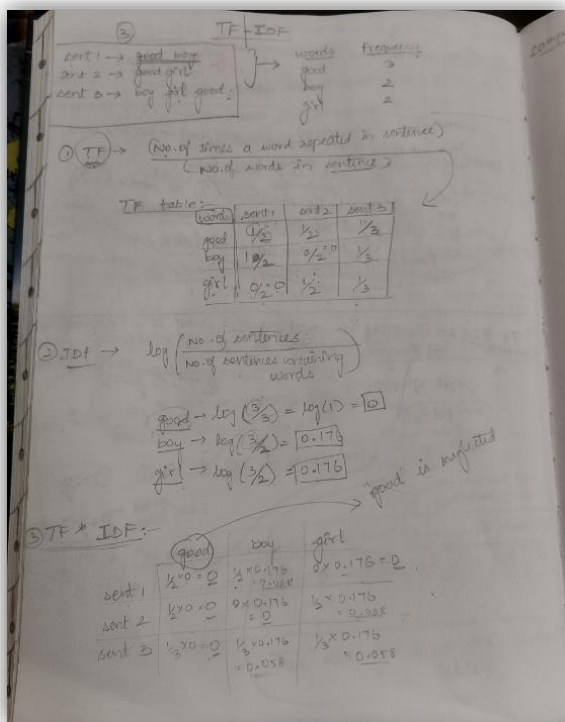 ③ TF-IDF
sent 1 → good boy
sent 2 → good girl
sent 3 → boy girl good.
words Frequency
good 3
boy 2
girl 2
① TF → (No. of times a word repeated in sentence)
(No. of words in sentence)
TF table:-
words sent1 sent2 sent3
good 1/2 1/2 1/3
boy 1/2 0/2=0 1/3
girl 0/2=0 1/2 1/3
② IDF → log (No. of sentences
No. of sentences containing
words)
good → log(3/3) = log(1) = 0
boy → log(3/2) = 0.176
girl → log(3/2) = 0.176
"good" is neglected
③ TF * IDF:-
good boy girl
sent 1 1/2×0=0 1/2×0.176 0×0.176=0
=0.088
sent 2 1/2×0=0 0×0.176 1/2×0.176
=0 =0.088
sent 3 1/3×0=0 1/3×0.176 1/3×0.176
=0.058 =0.058